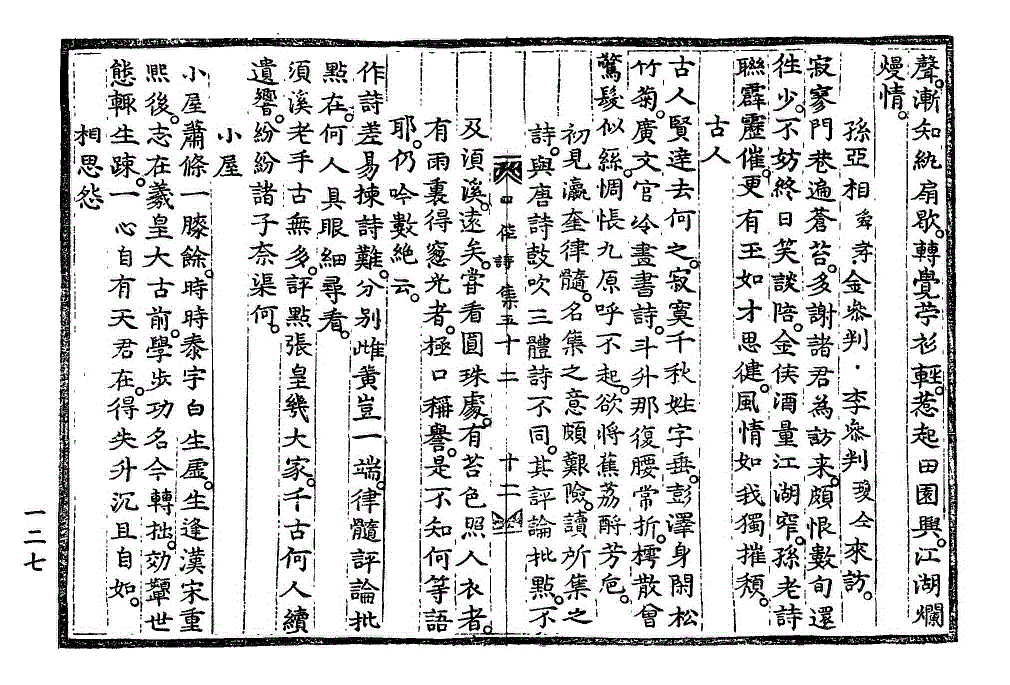 聲。漸知紈扇歇。轉覺苧衫輕。惹起田園興。江湖爛
熳情。
孫亞相舜孝金叅判・李叅判瓊仝來訪。
寂寥門巷遍蒼苔。多謝諸君為訪來。頗恨數旬還
徃少。不妨終日笑談陪。金侯酒量江湖窄。孫老詩
聯霹靂催。更有王如才思健。風情如我獨摧頹。
古人
古人賢達去何之。寂寞千秋姓字垂。彭澤身閑松
竹菊。廣文官冷畫書詩。斗升那復腰常折。樗散曾
驚髮似絲。惆悵九原呼不起。欲將蕉荔酹芳卮。
初見瀛奎律髓。名集之意頗艱險。讀所集之
詩。與唐詩鼓吹三體詩不同。其評論批點。不
四佳詩集五十二 十二
及湏溪。遠矣。甞看圓珠處。有苔色照人衣者。
有雨裏得窓光者。極口稱譽。是不知何等語
耶。仍吟數絶云。
作詩差易揀詩難。分別雌黄豈一端。律髓評論批
點在。何人具眼細尋看。
湏溪老手古無多。評點張皇幾大家。千古何人續
遺響。紛紛諸子奈渠何。
小屋
小屋蕭條一膝餘。時時泰字白生虛。生逢漢宋重
熙後。志在羲皇大古前。學步功名今轉拙。効顰世
態輒生踈。一心自有天君在。得失升沉且自如。
相思怨
一二七